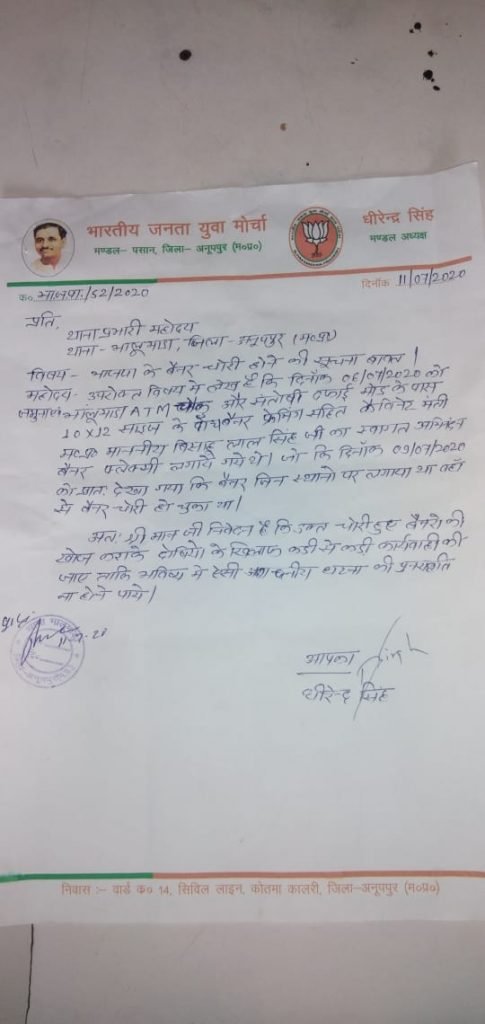 भारतीय जनता युवा मोर्चा
मण्डल– पसान, जिला– अनूपपुर (म०प्र०)
धीरेन्द्र सिंह
मण्डल अध्यक्ष
क०. भाजपा./52/2020
दिनाँक 11/07/2020
प्रति,
थाना प्रभारी महोदय
थाना- भालूमाडा, जिला- अनूपपुर (म०प्र०)
विषय- भाजपा के बैनर चोरी होने की सूचना बावत।
महोदय- उपरोक्त विषय में लेख है कि दिनाँक 06/07/2020 को
जमुना भालूमाडा ATM चौक और संतोषी दफाई मोड के पास
10x12 साइज के पाँच बैनर फ्रेमिंग सहित कैबिनेट मंत्री
म०प्र० माननीय बिसाहू लाल सिंह जी का स्वागत अभिनंदन
बैनर फ्लेक्सी लगाये गये थे। जो कि दिनाँक 09/07/2020
को प्रातः देखा गया कि बैनर जिन स्थानो पर लगाया था वहाँ
से बैनर चोरी हो चुका था।
अतः श्री मान जी निवेदन है कि उक्त चोरी हुए बैनरो की
खोज कराके दोषियो के खिलाफ कडी से कडी कार्यवाही की
जाए ताकि भविष्य में ऐसी घटना की पुनरावृत्ति
ना होने पाये।
आपका
धीरेन्द्र सिंह
निवास :– वार्ड क० 14, सिविल लाइन, कोतमा कालरी, जिला–अनूपपुर (म०प्र०)